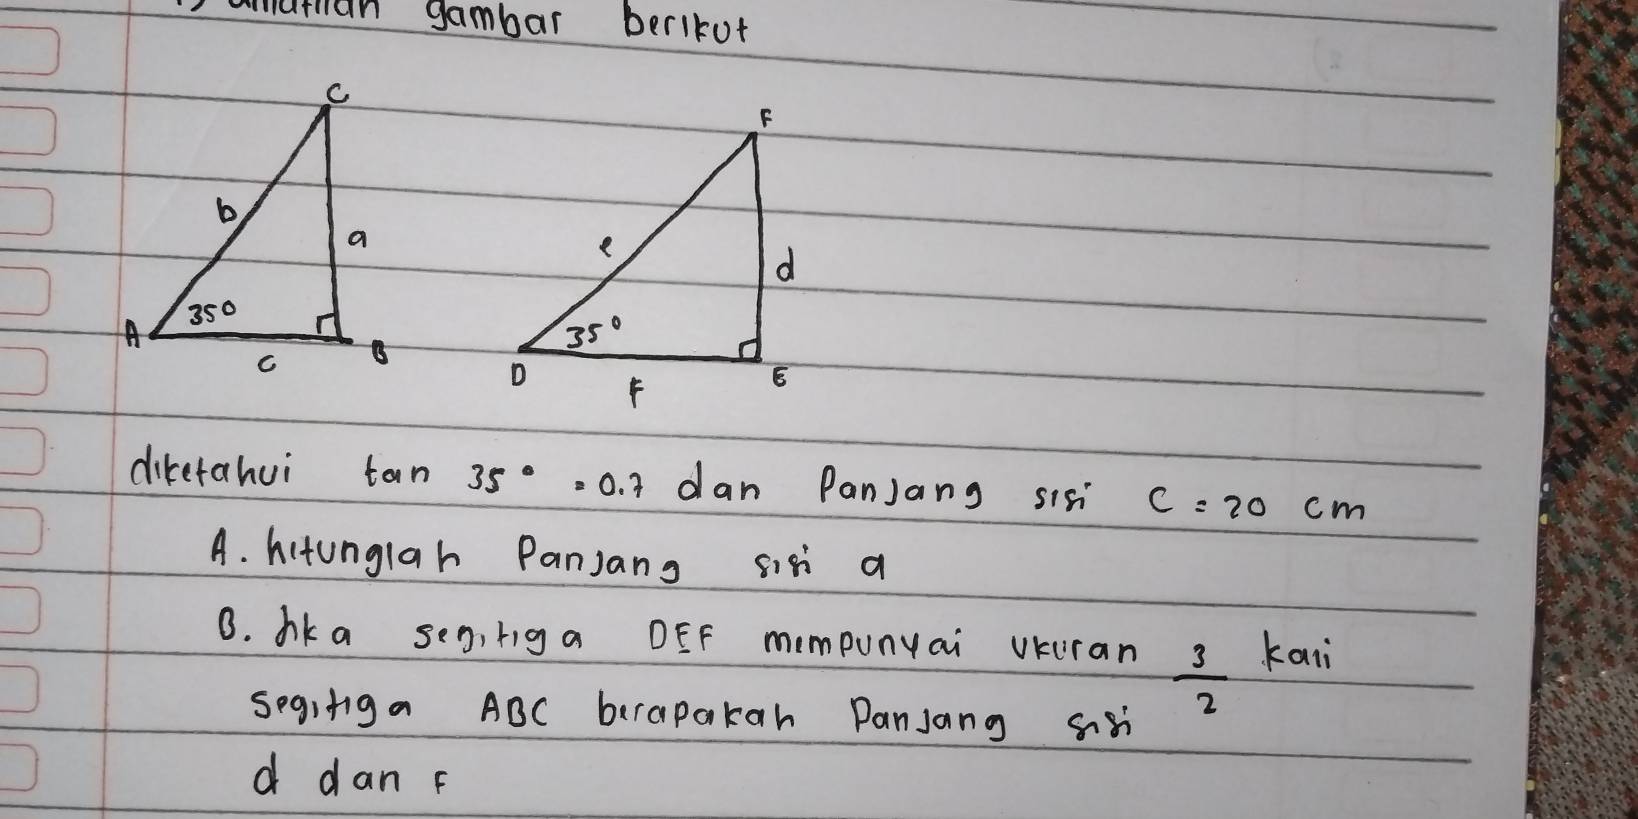 gambar berikut
C
F
b
a
e
d
35°
35°
A
B
c
D
E
F
diketahui tan 35° = 0.7 dan Panjang sisi C = 20 cm
A. hitunglah Panjang sisi a
B. Jika segitiga DEF mempunyai ukuran 3/2 kali
segitiga ABC berapakah Panjang sisi
d dan F